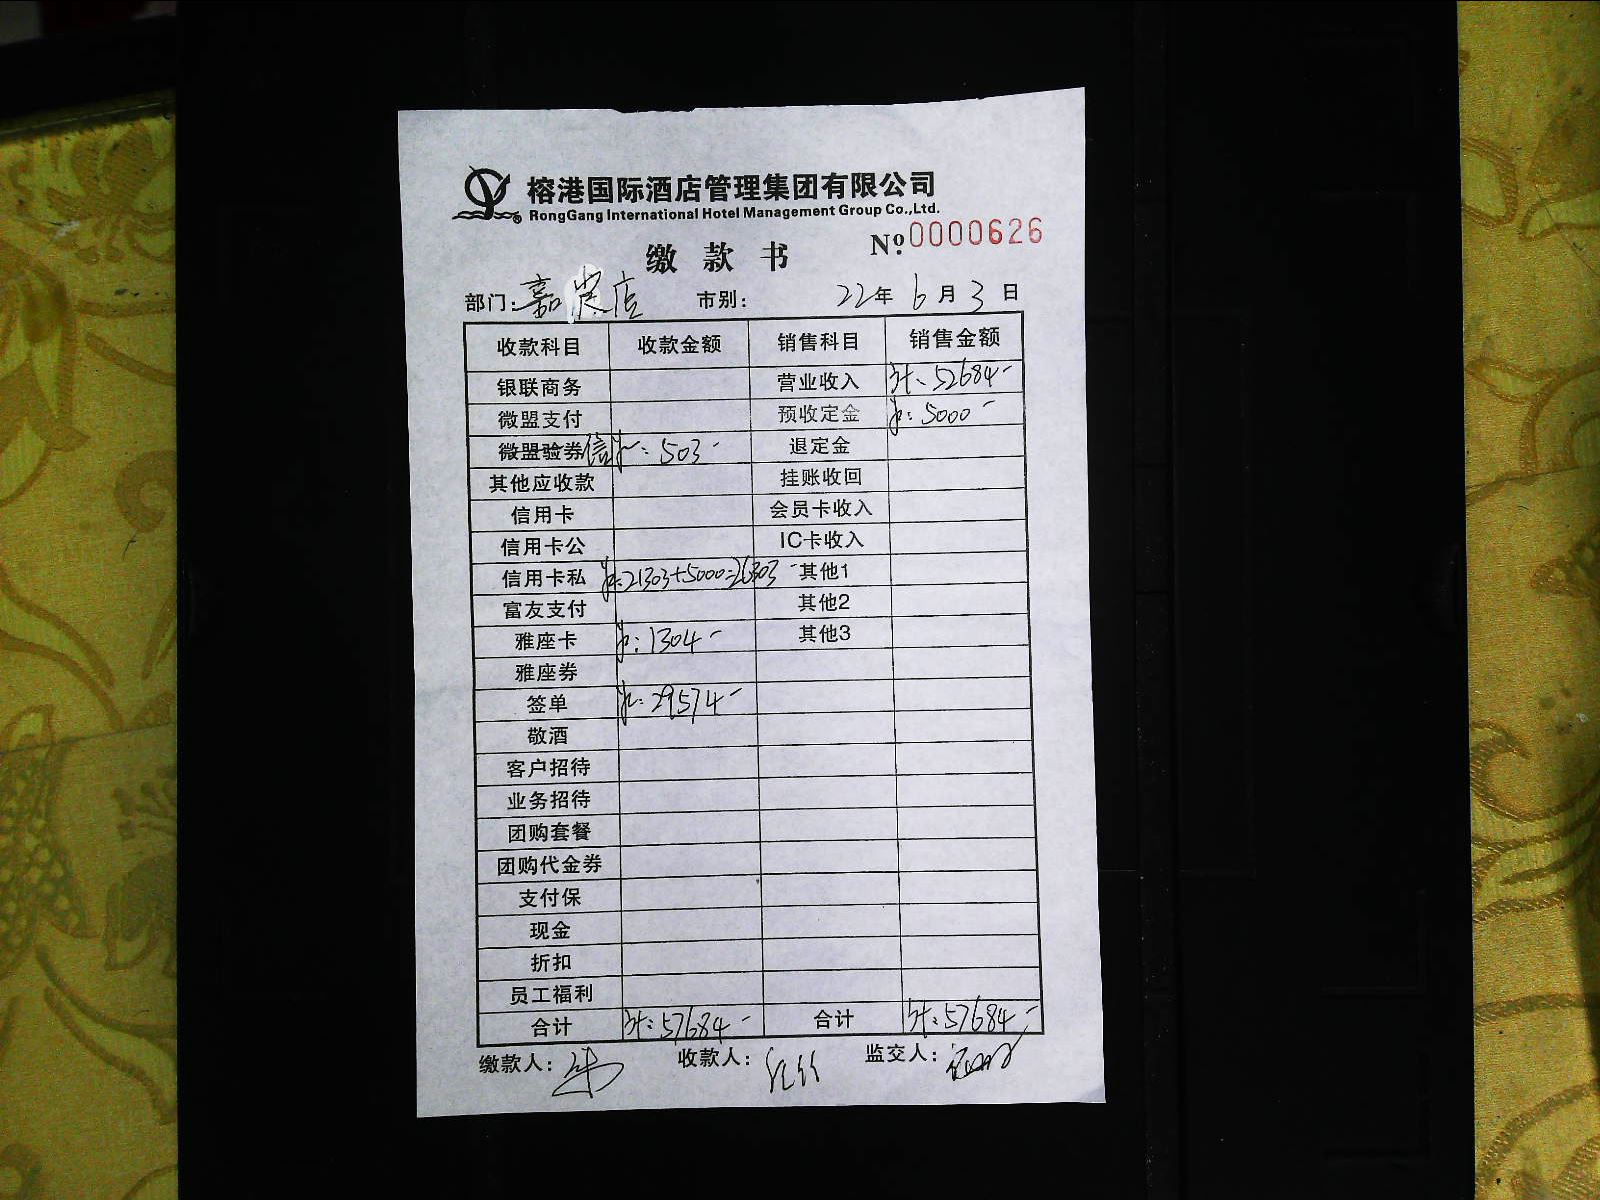 榕港国际酒店管理集团有限公司
RongGang International Hotel Management Group Co.,Ltd.
缴款书 №0000626
部门: 嘉 店 市别: 22年6月3日
收款科目 收款金额 销售科目 销售金额
银联商务 营业收入 52684-
微盟支付 预收定金 : 5000-
微盟验券 信 : 503- 退定金
其他应收款 挂账收回
信用卡 会员卡收入
信用卡公 IC卡收入
信用卡私 : 21303+5000=26303- 其他1
富友支付 其他2
雅座卡 : 1304- 其他3
雅座券
签单 : 29574-
敬酒
客户招待
业务招待
团购套餐
团购代金券
支付保
现金
折扣
员工福利
合计 : 57684- 合计 : 57684-
缴款人: 收款人: 监交人: